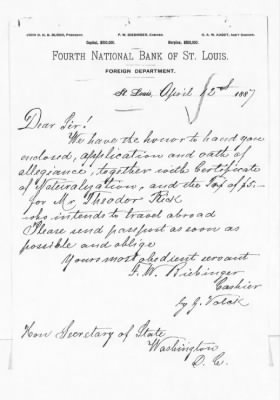 JOHN C. H. D. BLOCK, President. F. W. BIEBINGER, Cashier. G. A. W. AUGST, Ass't Cashier.
Capital, $500,000. Surplus, $500,000.
FOURTH NATIONAL BANK OF ST. LOUIS.
FOREIGN DEPARTMENT.
St. Louis, April 12th 1887
Dear Sir!
We have the honor to hand you
enclosed, application and oath of
allegiance, together with Certificate
of Naturalyzation, and the Tax of $5.—
for Mr Theodor Rick
who intends to travel abroad
Please send passport as soon as
possible and oblige
Yours most obedient servant
F. W. Biebinger
Cashier
by J.
Hon Secretary of State
Washington
D. C.